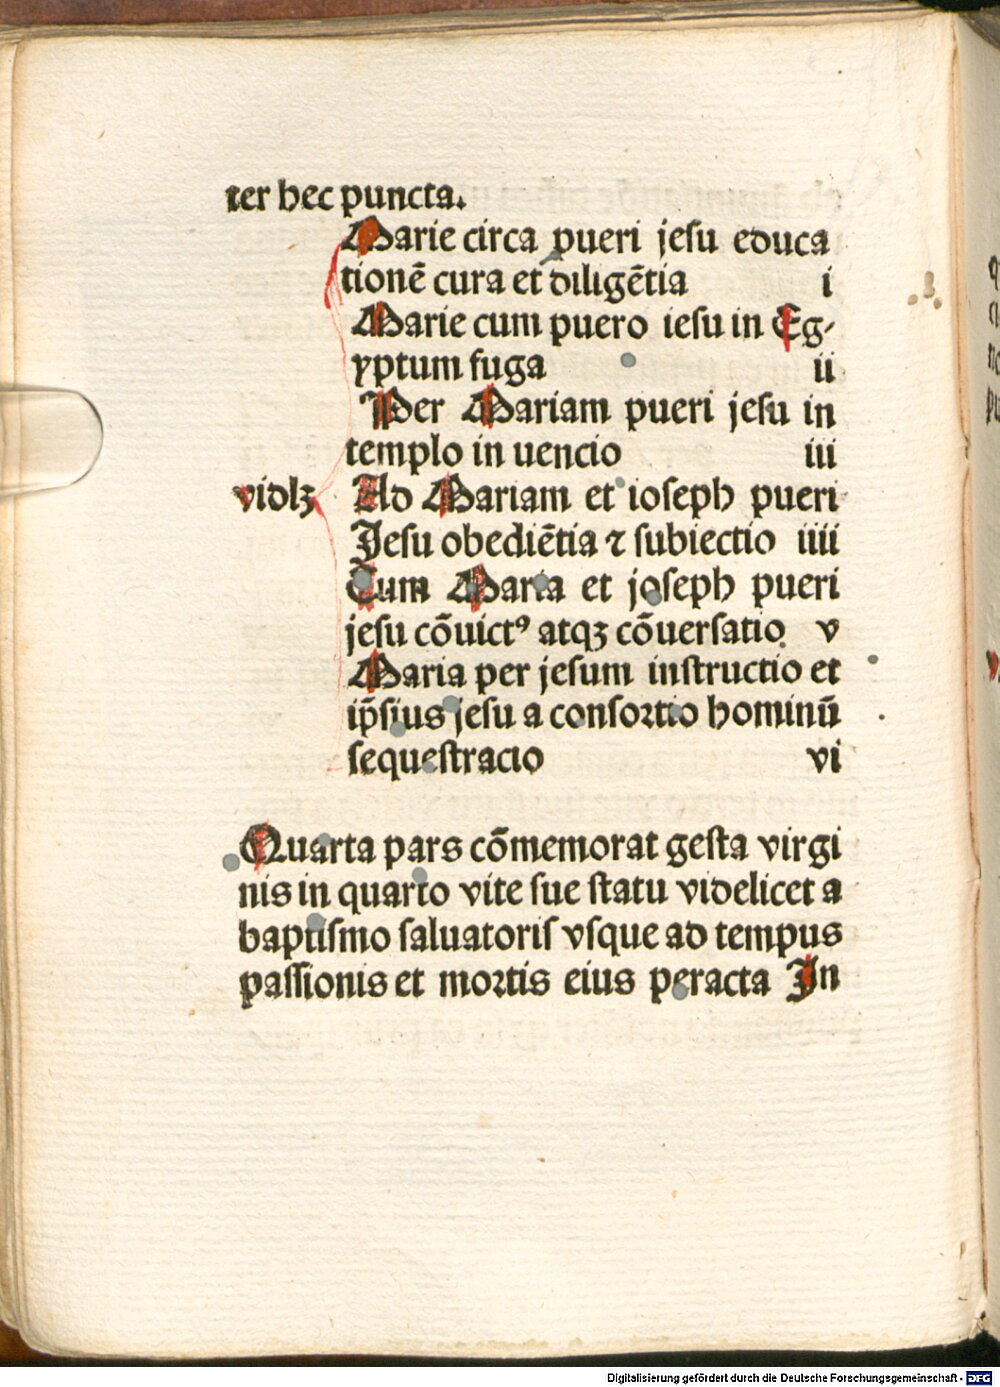 ter hec puncta.
Marie circa pueri jesu educa
tionē cura et diligētia i
Marie cum puero iesu in Eg-
yptum fuga ii
Per Mariam pueri jesu in
templo in uencio iii
vidlꝫ Ad Mariam et ioseph pueri
Jesu obediētia ⁊ subiectio iiii
Cum Maria et joseph pueri
jesu cōuictꝰ atqꝫ cōuersatio v
Maria per jesum instructio et
ip̄sius jesu a consortio hominū
sequestracio vi
Quarta pars cōmemorat gesta virgi
nis in quarto vite sue statu videlicet a
baptismo saluatoris vsque ad tempus
passionis et mortis eius peracta In
Digitalisierung gefördert durch die Deutsche Forschungsgemeinschaft - DFG